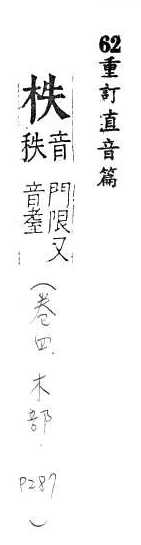 62重訂直音篇
柣音秩門限又音耋
(卷四.木部.P287)